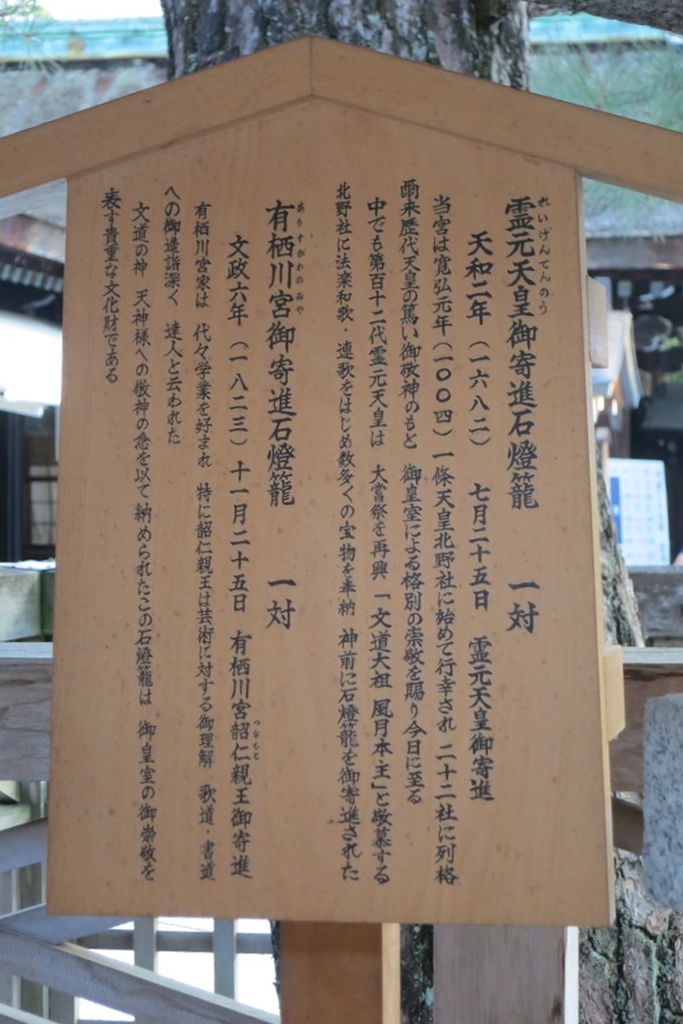 霊元天皇御寄進石燈籠 一対
れいげんてんのう
天和二年(一六八二) 七月二十五日 霊元天皇御寄進
当宮は寛弘元年(一〇〇四)一條天皇北野社に始めて行幸され 二十二社に列格
爾来歴代天皇の篤い御敬神のもと 御皇室による格別の崇敬を賜り今日に至る
中でも第百十二代霊元天皇は 大嘗祭を再興 「文道大祖 風月本主」と敬慕する
北野社に法楽和歌・連歌をはじめ数多くの宝物を奉納 神前に石燈籠を御寄進された
有栖川宮御寄進石燈籠 一対
ありすがわのみや
文政六年(一八二三)十一月二十五日 有栖川宮韶仁親王御寄進
つなひと
有栖川宮家は 代々学業を好まれ 特に韶仁親王は芸術に対する御理解 歌道・書道
への御造詣深く 達人と云われた
文道の神 天神様への敬神の念を以て納められたこの石燈籠は 御皇室の御崇敬を
表す貴重な文化財である